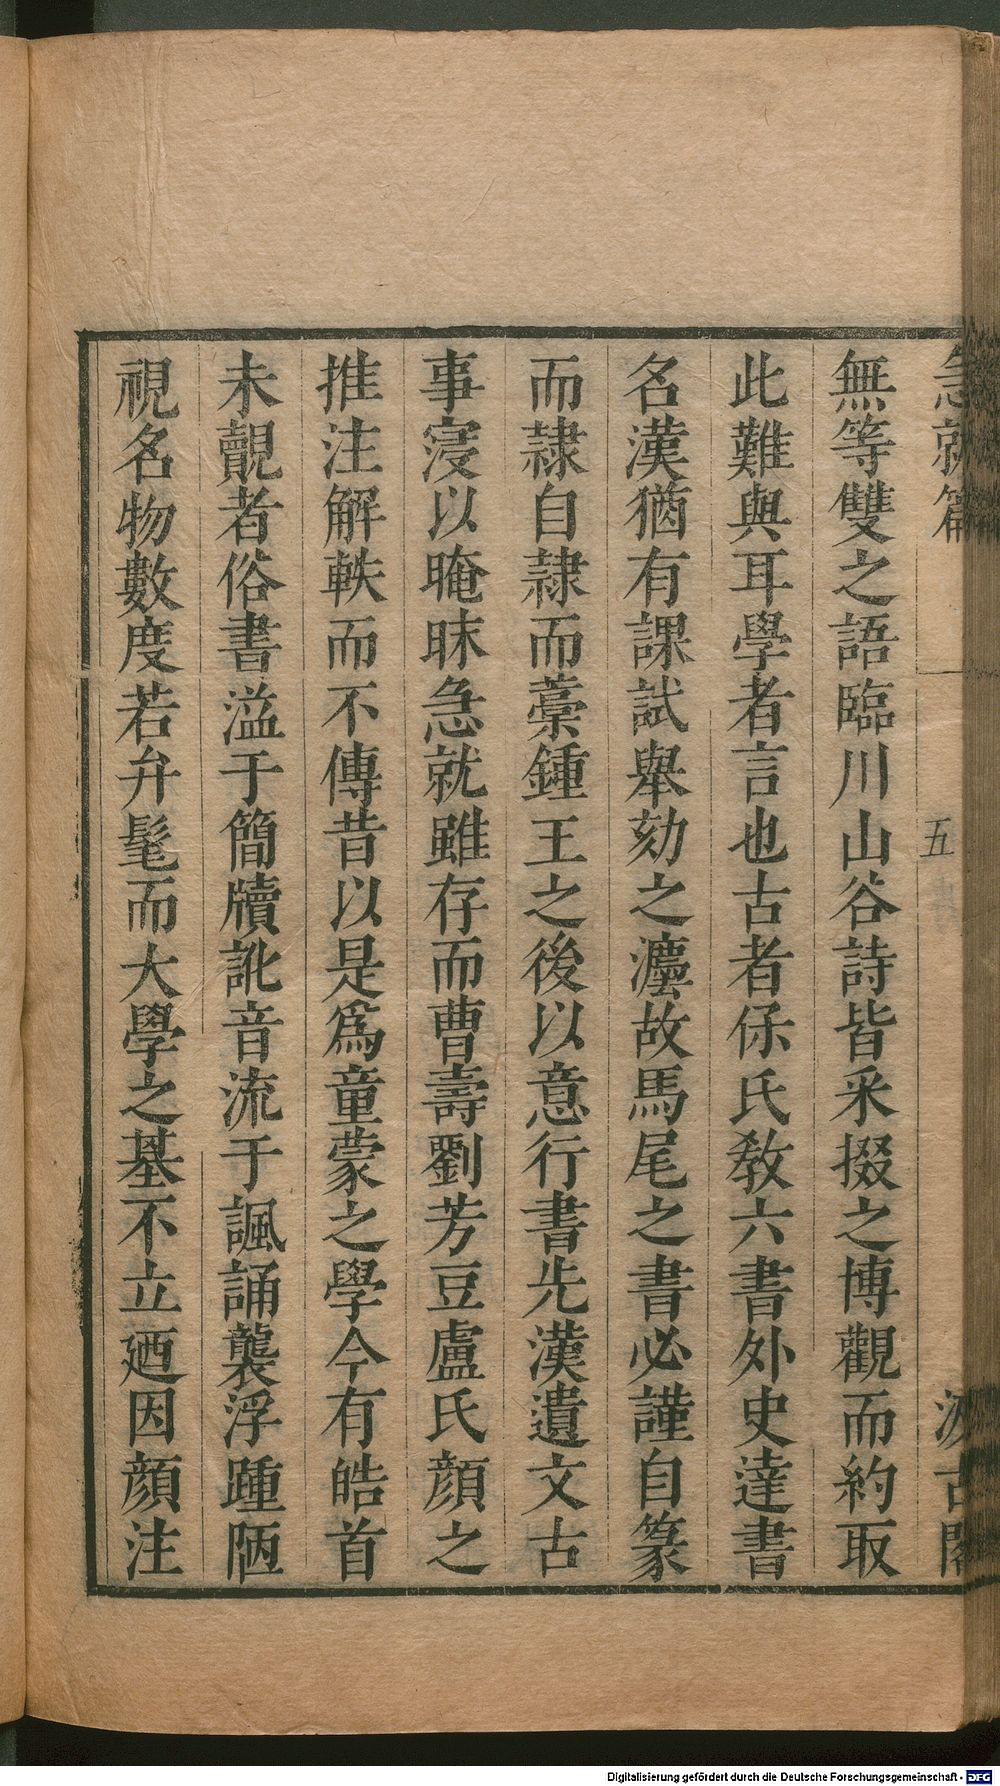 急就篇 五 汲古閣
無等雙之語臨川山谷詩皆采掇之博觀而約取
此難與耳學者言也古者保氏敎六書外史達書
名漢猶有課試舉劾之灋故馬尾之書必謹自篆
而隷自隷而藁鍾王之後以意行書先漢遺文古
事寖以晻昧急就雖存而曹壽劉芳豆盧氏顔之
推注解軼而不傳昔以是爲童蒙之學今有皓首
未覿者俗書溢于簡牘訛音流于諷誦襲浮踵陋
視名物數度若弁髦而大學之基不立廼因顔注
Digitalisierung gefördert durch die Deutsche Forschungsgemeinschaft - DFG